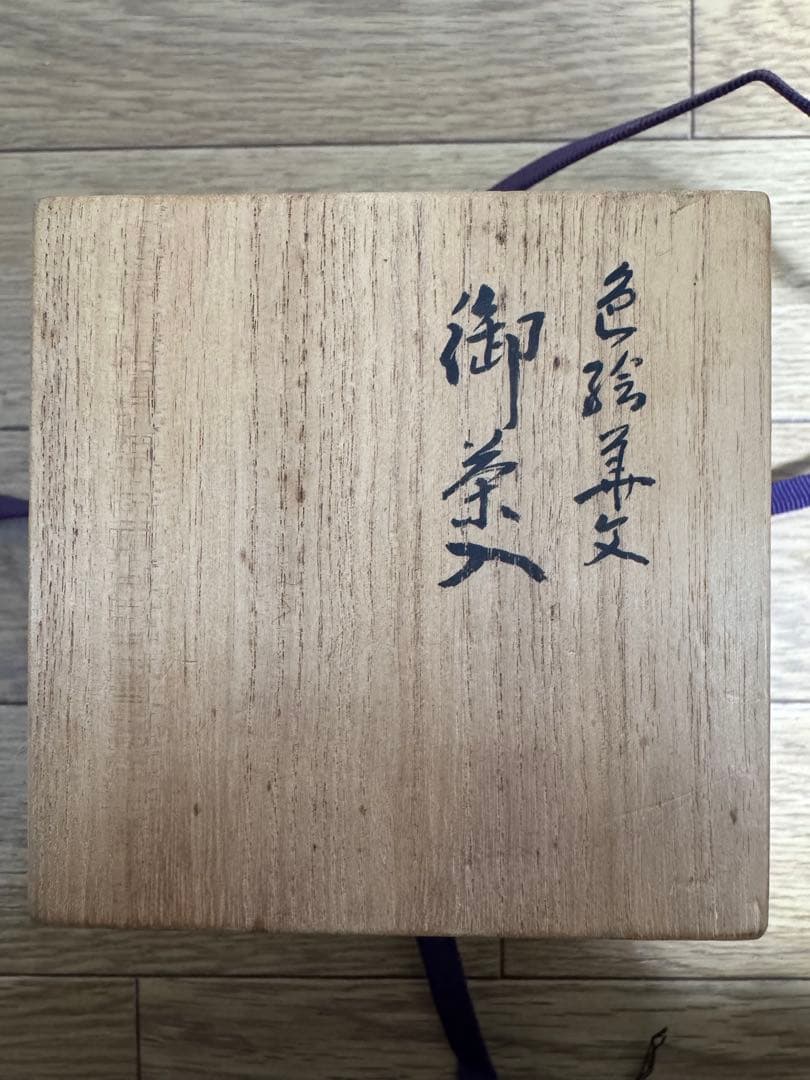 色絵華文
御茶入